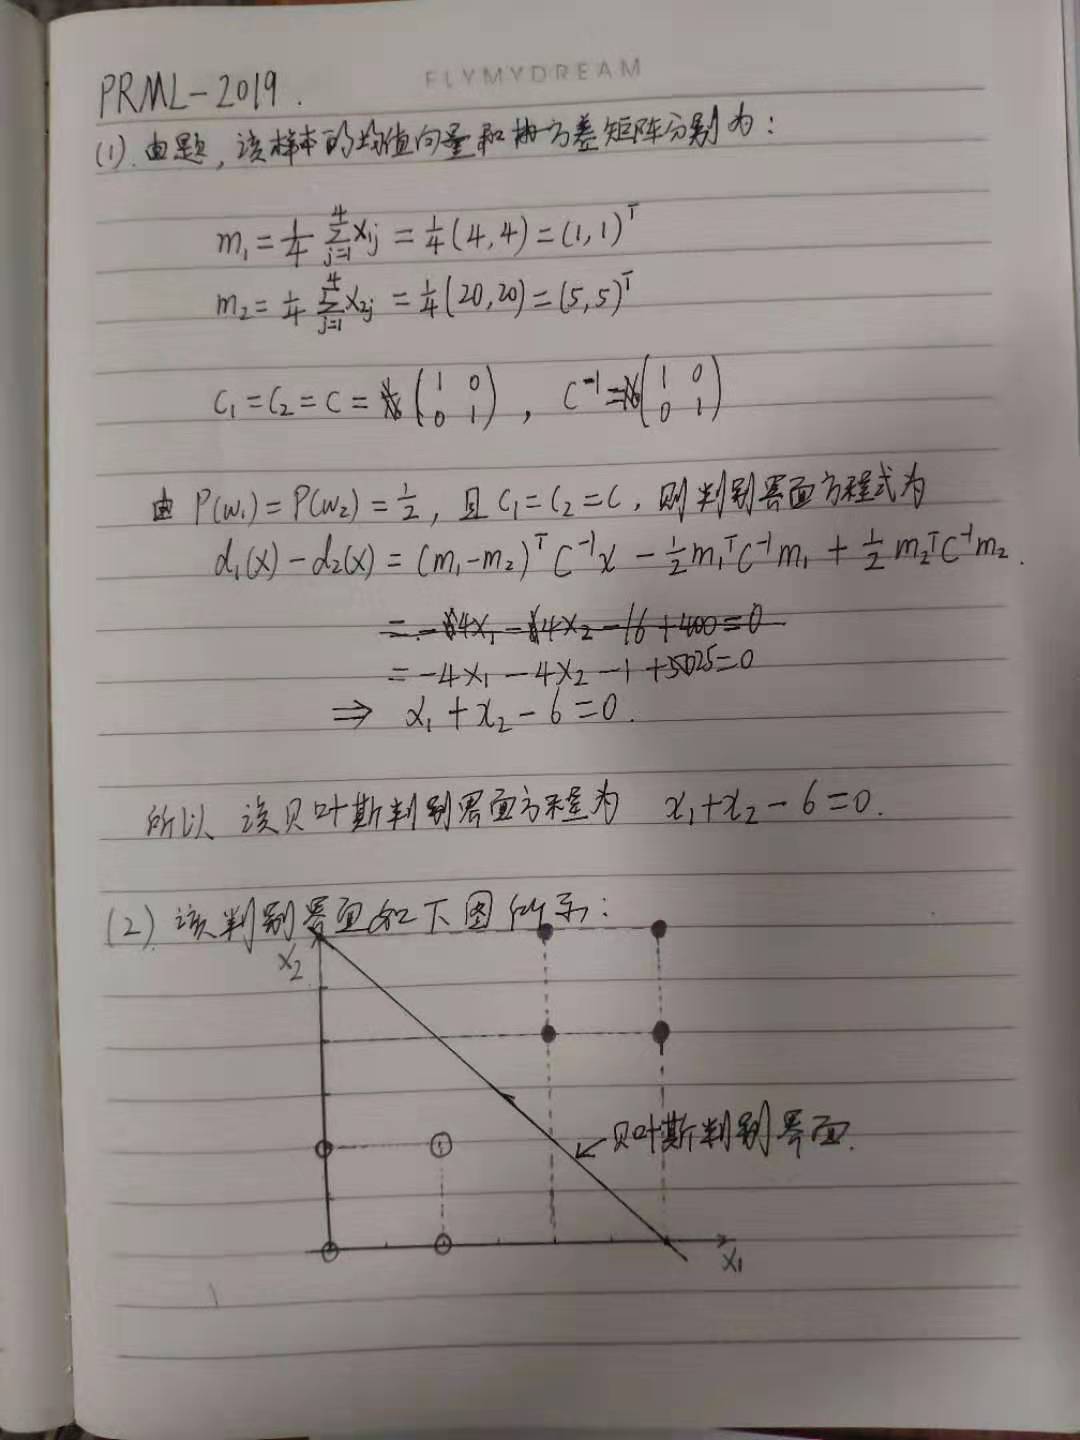 FLYMYDREAM
PRML-2019.
(1). 由题, 该样本的均值向量和协方差矩阵分别为:
m₁ = 1/4 Σ_{j=1}^{4} x₁ⱼ = 1/4 (4, 4) = (1, 1)ᵀ
m₂ = 1/4 Σ_{j=1}^{4} x₂ⱼ = 1/4 (20, 20) = (5, 5)ᵀ
C₁ = C₂ = C = (1 0; 0 1), C⁻¹ = (1 0; 0 1)
由 P(w₁) = P(w₂) = 1/2, 且 C₁ = C₂ = C, 则判别界面方程式为
d₁(x) - d₂(x) = (m₁ - m₂)ᵀ C⁻¹ x - 1/2 m₁ᵀ C⁻¹ m₁ + 1/2 m₂ᵀ C⁻¹ m₂.
= -4x₁ - 4x₂ - 1 + 25 = 0
⇒ x₁ + x₂ - 6 = 0.
所以 该贝叶斯判别界面方程为 x₁ + x₂ - 6 = 0.
(2). 该判别界面如下图所示:
x₂
贝叶斯判别界面.
x₁